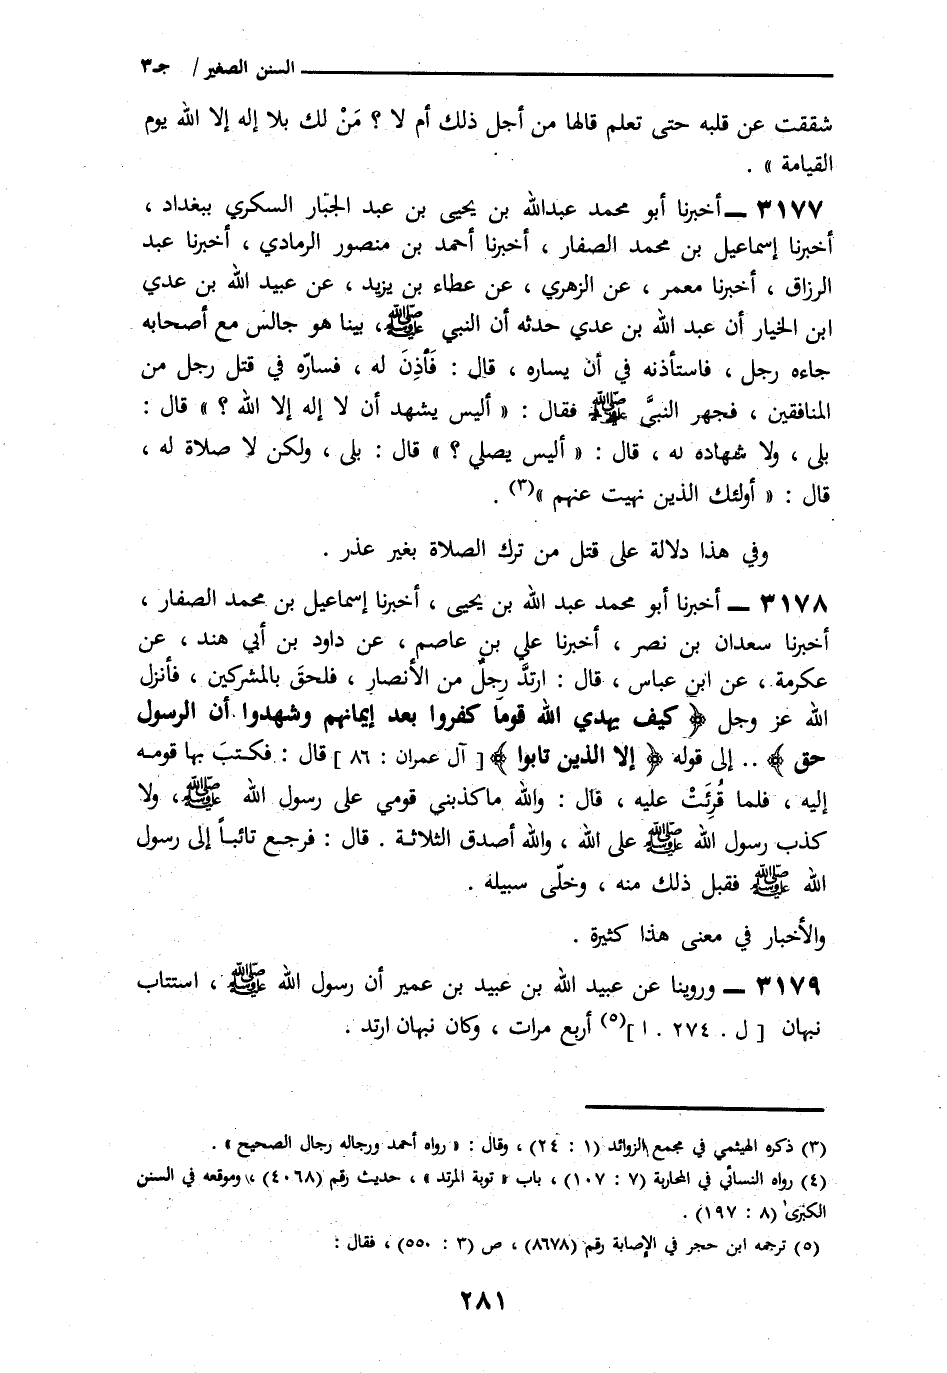 السنن الصغير / جـ٣
شققت عن قلبه حتى تعلم قالها من أجل ذلك أم لا ؟ مَنْ لك بلا إله إلا الله يوم
القيامة » .
٣١٧٧ ــ أخبرنا أبو محمد عبدالله بن يحيى بن عبد الجبّار السكري ببغداد ،
أخبرنا إسماعيل بن محمد الصفار ، أخبرنا أحمد بن منصور الرمادي ، أخبرنا عبد
الرزاق ، أخبرنا معمر ، عن الزهري ، عن عطاء بن يزيد ، عن عبيد الله بن عدي
ابن الخيار أن عبد الله بن عدي حدثه أن النبي ﷺ، بينا هو جالس مع أصحابه
جاءه رجل ، فاستأذنه في أن يساره ، قال : فَأذِنَ له ، فسارّه في قتل رجل من
المنافقين ، فجهر النبيَّ ﷺ فقال : « أليس يشهد أن لا إله إلا الله ؟ » قال :
بلى ، ولا شهاده له ، قال : « أليس يصلي ؟ » قال : بلى ، ولكن لا صلاة له ،
قال : « أولئك الذين نهيت عنهم »(٣) .
وفي هذا دلالة على قتل من ترك الصلاة بغير عذر .
٣١٧٨ ــ أخبرنا أبو محمد عبد الله بن يحيى ، أخبرنا إسماعيل بن محمد الصفار ،
أخبرنا سعدان بن نصر ، أخبرنا علي بن عاصم ، عن داود بن أبي هند ، عن
عكرمة ، عن ابن عباس ، قال : ارتدَّ رجلٌ من الأنصار ، فلحقَ بالمشركين ، فأنزل
الله عز وجل ﴿ كيف يهدي الله قوماً كفروا بعد إيمانهم وشهدوا أن الرسول
حق ﴾ .. إلى قوله ﴿ إلا الذين تابوا ﴾ [ آل عمران : ٨٦ ] قال : فكتبَ بها قومه
إليه ، فلما قُرِئَتْ عليه ، قال : والله ماكذبني قومي على رسول الله ﷺ، ولا
كذب رسول الله ﷺ على الله ، والله أصدق الثلاثة . قال : فرجع تائباً إلى رسول
الله ﷺ فقبل ذلك منه ، وخلّى سبيله .
والأخبار في معنى هذا كثيرة .
٣١٧٩ ــ وروينا عن عبيد الله بن عبيد بن عمير أن رسول الله ﷺ ، استتاب
نبهان [ ل . ٢٧٤ . ا ](٥) أربع مرات ، وكان نبهان ارتد .
(٣) ذكره الهيثمي في مجمع الزوائد (١ : ٢٤) ، وقال : « رواه أحمد ورجاله رجال الصحيح » .
(٤) رواه النسائي في المحاربة (٧ : ١٠٧) ، باب « توبة المرتد » ، حديث رقم (٤٠٦٨) ، وموقعه في السنن
الكبرى (٨ : ١٩٧) .
(٥) ترجمه ابن حجر في الإصابة رقم (٨٦٧٨) ، ص (٣ : ٥٥٠) ، فقال :
٢٨١